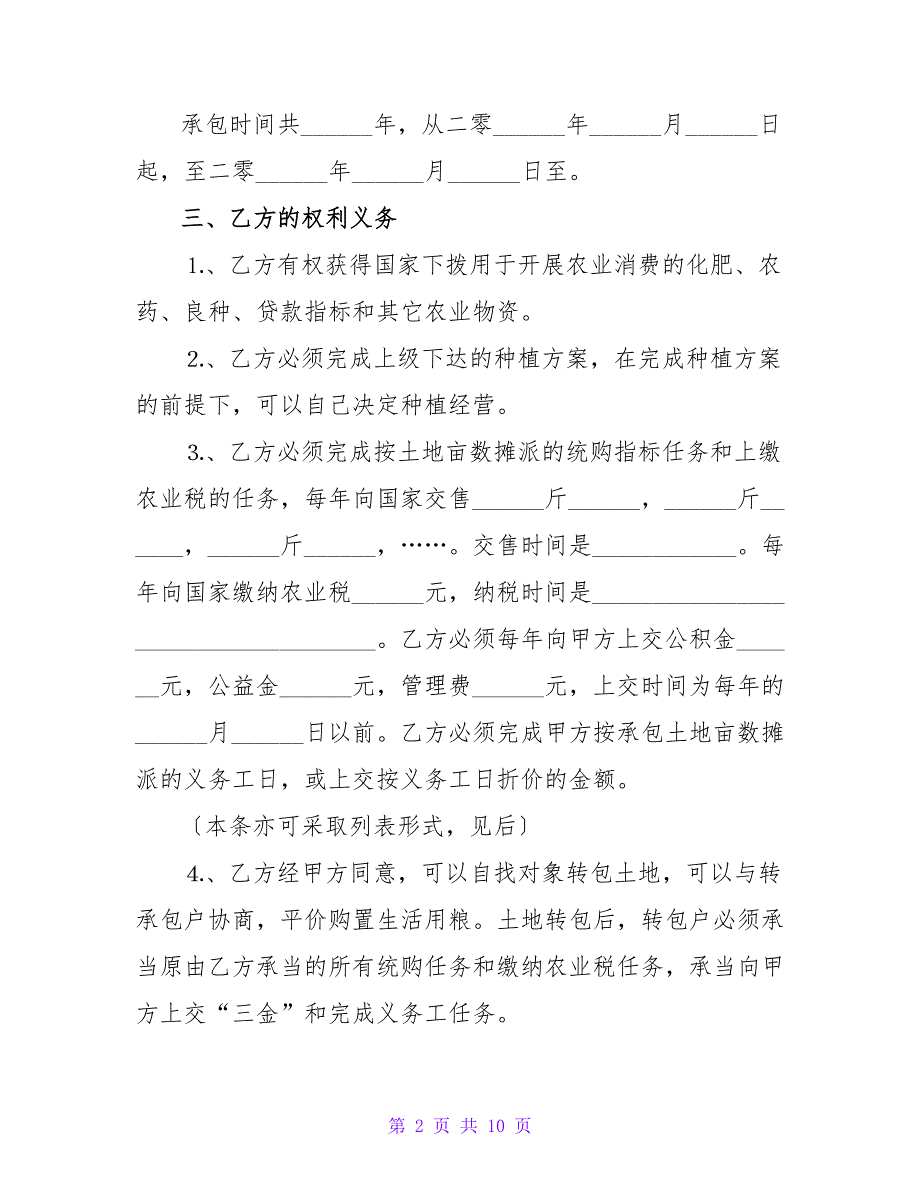 承包时间共______年，从二零______年______月______日
起，至二零______年______月______日至。
三、乙方的权利义务
1.、乙方有权获得国家下拨用于开展农业消费的化肥、农
药、良种、贷款指标和其它农业物资。
2.、乙方必须完成上级下达的种植方案，在完成种植方案
的前提下，可以自己决定种植经营。
3.、乙方必须完成按土地亩数摊派的统购指标任务和上缴
农业税的任务，每年向国家交售______斤______，______斤__
____，______斤______，……。交售时间是____________。每
年向国家缴纳农业税______元，纳税时间是________________
____________________。乙方必须每年向甲方上交公积金____
__元，公益金______元，管理费______元，上交时间为每年的
______月______日以前。乙方必须完成甲方按承包土地亩数摊
派的义务工日，或上交按义务工日折价的金额。
〔本条亦可采取列表形式，见后〕
4.、乙方经甲方同意，可以自找对象转包土地，可以与转
承包户协商，平价购置生活用粮。土地转包后，转包户必须承
当原由乙方承当的所有统购任务和缴纳农业税任务，承当向甲
方上交“三金”和完成义务工任务。
第 2 页 共 10 页